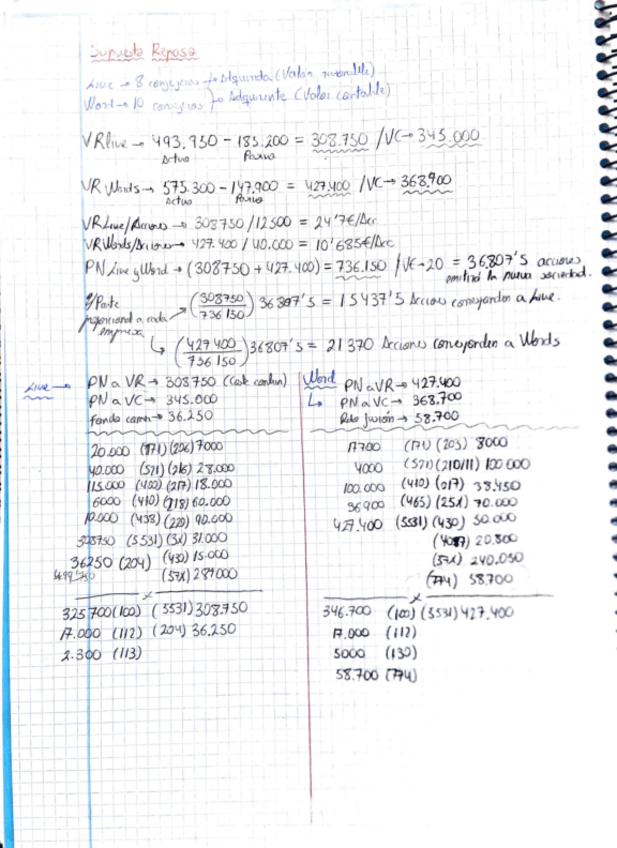 Supuesto Repaso
Live → 8 consejeros → Adquirida (Valor razonable)
Word → 10 consejeros → Adquirente (Valor contable)
VR live → 493.950 - 185.200 = 308.750 / VC → 345.000
Activo Pasivo
VR Words → 575.300 - 147.900 = 427.400 / VC → 368.700
Activo Pasivo
VR Live/Acciones → 308750 / 12500 = 24'7€/Acc
VR Words/Acciones → 427.400 / 40.000 = 10'685€/Acc
PN Live y Word → (308750 + 427.400) = 736.150 / VE → 20 = 36.807'5 acciones
emitirá la nueva sociedad.
Parte proporcional a cada empresa → (308750 / 736150) 36807'5 = 15437'5 Acciones corresponden a Live.
↳ (427400 / 736150) 36807'5 = 21370 Acciones corresponden a Words
Live →
PN a VR → 308750 (Coste combin)
PN a VC → 345.000
Fondo comer → 36.250
20.000 (171) (206) 7000
40.000 (521) (216) 28.000
115.000 (400) (217) 18.000
6000 (410) (218) 60.000
(438) (220) 90.000
308750 (5531) (3x) 31.000
36250 (204) (430) 15.000
(57x) 287000
x
325700 (100) (5531) 308.750
17.000 (112) (204) 36.250
2.300 (113)
Word
↳
PN a VR → 427.400
PN a VC → 368.700
Rdo fusión → 58.700
17700 (171) (203) 8000
4000 (521) (210/11) 100.000
100.000 (410) (217) 38.450
(465) (25x) 70.000
427.400 (5531) (430) 50.000
20.800
(57x) 240.050
(774) 58.700
x
346.700 (100) (5531) 427.400
17.000 (112)
5000 (130)
58.700 (774)